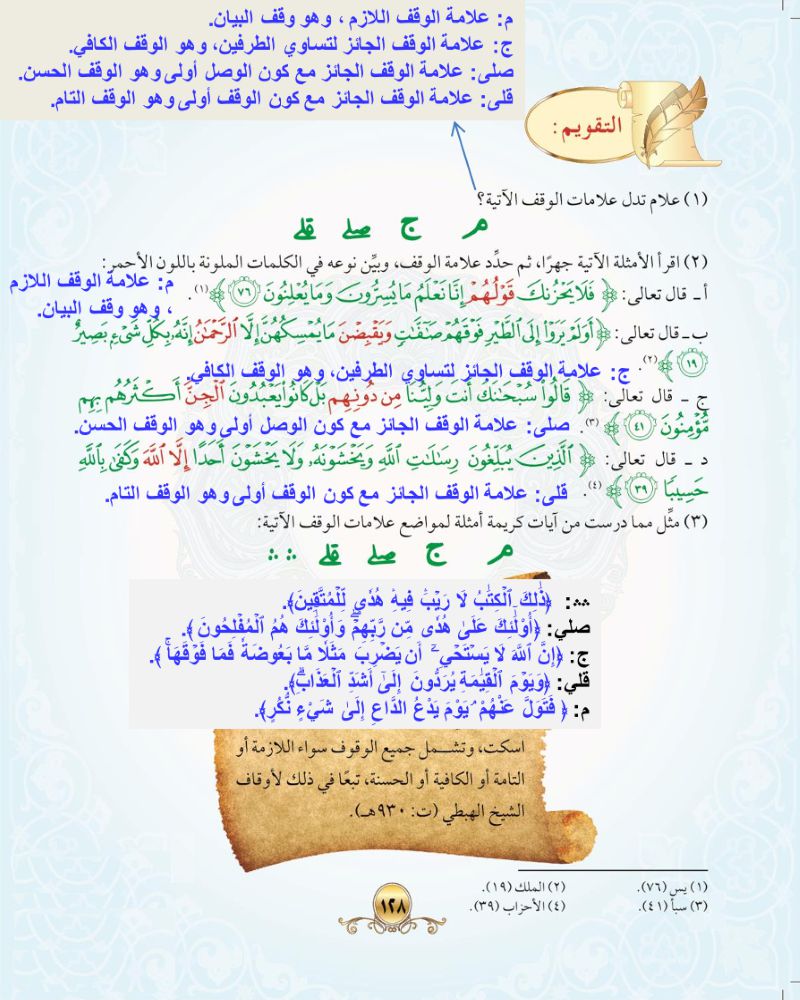 م: علامة الوقف اللازم ، وهو وقف البيان.
ج: علامة الوقف الجائز لتساوي الطرفين، وهو الوقف الكافي.
صلى: علامة الوقف الجائز مع كون الوصل أولى وهو الوقف الحسن.
قلى: علامة الوقف الجائز مع كون الوقف أولى وهو الوقف التام.
التقويم:
(١) علام تدل علامات الوقف الآتية؟
م ج صلے قلے
(٢) اقرأ الأمثلة الآتية جهرًا، ثم حدِّد علامة الوقف، وبيِّن نوعه في الكلمات الملونة باللون الأحمر:
أ- قال تعالى: ﴿ فَلَا يَحْزُنكَ قَوْلُهُمْ إِنَّا نَعْلَمُ مَا يُسِرُّونَ وَمَا يُعْلِنُونَ ٧٦ ﴾(١). م: علامة الوقف اللازم
، وهو وقف البيان.
ب- قال تعالى: ﴿ أَوَلَمْ يَرَوْا إِلَى الطَّيْرِ فَوْقَهُمْ صَٰٓفَّٰتٍ وَيَقْبِضْنَ مَا يُمْسِكُهُنَّ إِلَّا الرَّحْمَٰنُ إِنَّهُ بِكُلِّ شَيْءٍ بَصِيرٌ
١٩ ﴾(٢). ج: علامة الوقف الجائز لتساوي الطرفين، وهو الوقف الكافي.
ج - قال تعالى: ﴿ قَالُوا سُبْحَٰنَكَ أَنتَ وَلِيُّنَا مِن دُونِهِم بَلْ كَانُوا يَعْبُدُونَ الْجِنَّ أَكْثَرُهُم بِهِم
مُّؤْمِنُونَ ٤١ ﴾(٣). صلى: علامة الوقف الجائز مع كون الوصل أولى وهو الوقف الحسن.
د - قال تعالى: ﴿ الَّذِينَ يُبَلِّغُونَ رِسَٰلَٰتِ اللَّهِ وَيَخْشَوْنَهُ وَلَا يَخْشَوْنَ أَحَدًا إِلَّا اللَّهَ وَكَفَىٰ بِاللَّهِ
حَسِيبًا ٣٩ ﴾(٤). قلى: علامة الوقف الجائز مع كون الوقف أولى وهو الوقف التام.
(٣) مثِّل مما درست من آيات كريمة أمثلة لمواضع علامات الوقف الآتية:
م ج صلے قلے ∴ ∴
∴∴: ﴿ذَٰلِكَ ٱلْكِتَٰبُ لَا رَيْبَۛ فِيهِۛ هُدًى لِّلْمُتَّقِينَ﴾.
صلي: ﴿أُوْلَٰٓئِكَ عَلَىٰ هُدًى مِّن رَّبِّهِمْۖ وَأُوْلَٰٓئِكَ هُمُ ٱلْمُفْلِحُونَ ﴾.
ج: ﴿إِنَّ ٱللَّهَ لَا يَسْتَحْيِۦٓ أَن يَضْرِبَ مَثَلًا مَّا بَعُوضَةً فَمَا فَوْقَهَاۚ ﴾.
قلي: ﴿وَيَوْمَ ٱلْقِيَٰمَةِ يُرَدُّونَ إِلَىٰٓ أَشَدِّ ٱلْعَذَابِۗ﴾.
م: ﴿ فَتَوَلَّ عَنْهُمْۘ يَوْمَ يَدْعُ الدَّاعِ إِلَىٰ شَيْءٍ نُّكُرٍ﴾.
اسكت، وتشـــمل جميع الوقوف سواء اللازمة أو
التامة أو الكافية أو الحسنة، تبعًا في ذلك لأوقاف
الشيخ الهبطي (ت: ٩٣٠هـ).
(١) يس (٧٦). (٢) الملك (١٩).
(٣) سبأ (٤١). (٤) الأحزاب (٣٩).
١٢٨